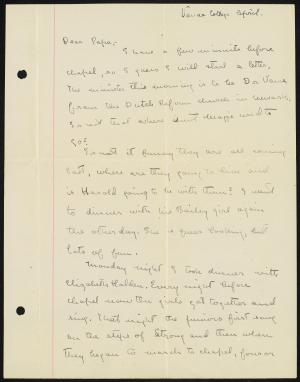 Vassar College April.
Dear Papa,
I have a few minutes before
chapel, so I guess I will start a letter.
The minister this morning is to be Dr Vance
from the Dutch Reform church in Newark,
Is not that where Aunt Maggie used to
go?
Is not it funny they are all coming
East, where are they going to live and
is Harold going to be with them? I went
to dinner with the Bailey girl again
the other day. She is queer looking, but
lots of fun.
Monday night I took dinner with
Elizabeth Halden. Every night before
chapel now the girls get together and
sing. That night the juniors first sang
on the steps of Strong and then when
they began to march to chapel, four or